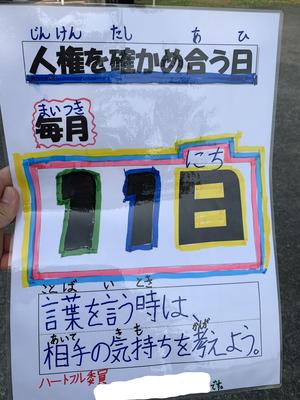 じんけん たし あ ひ
人権を確かめ合う日
まいつき
毎月
にち
11日
ことば い とき
言葉を言う時は、
あいて きも かんが
相手の気持ちを考えよう。
ハートフル委員
です。